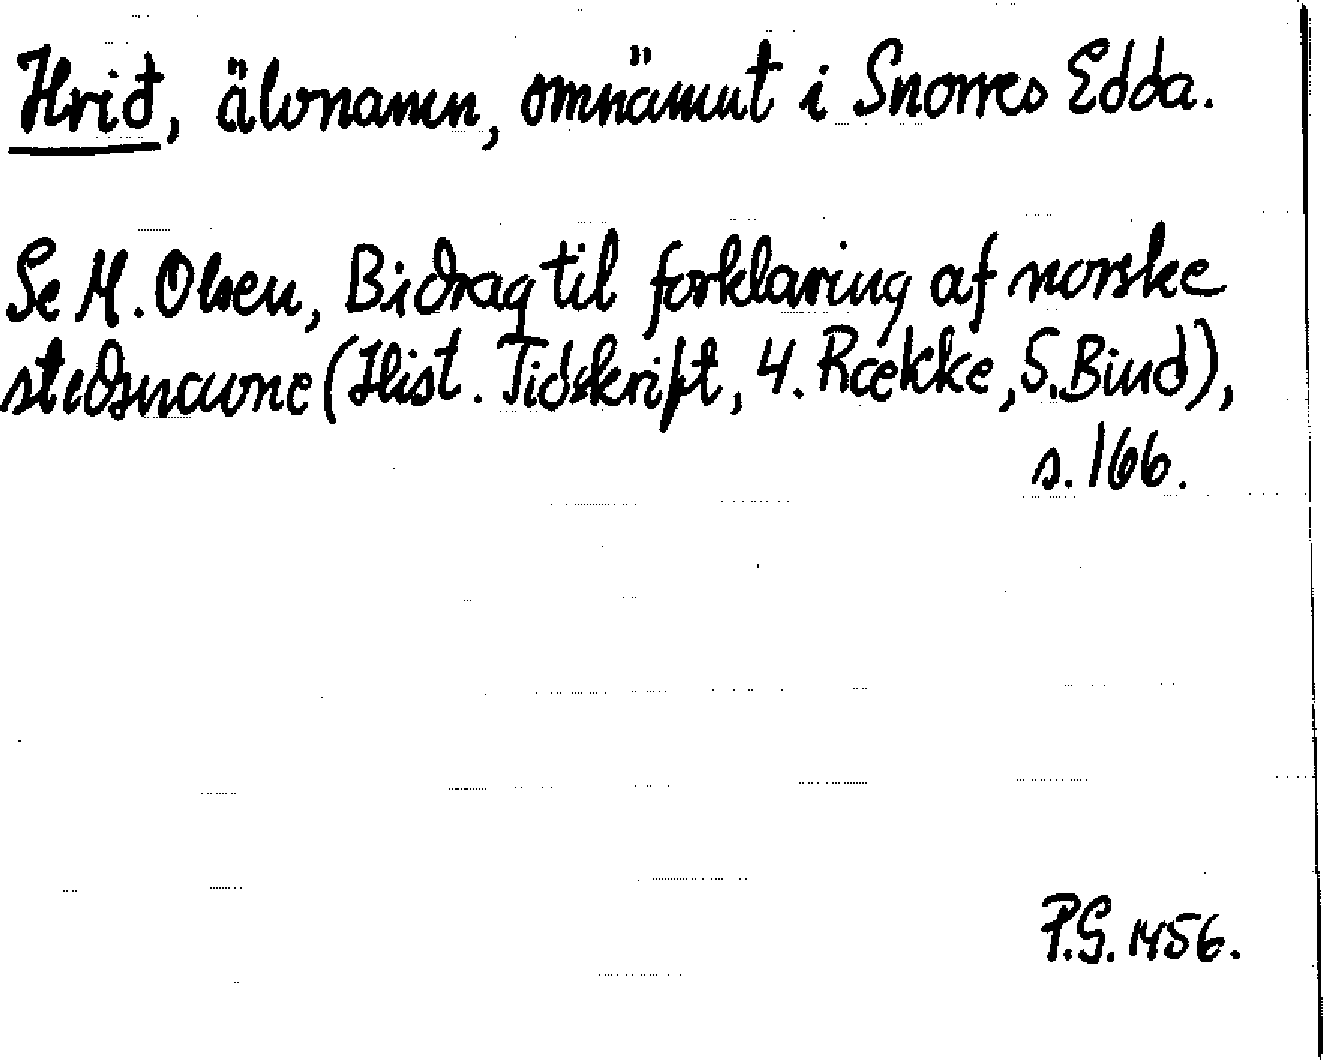 Hrið, älvnamn, omnämnt i Snorres Edda.
Se M. Olsen, Bidrag til forklaring af norske
stedsnavne (Hist. Tidskrift, 4. Række, 5. Bind),
s. 166.
P.G. 1956.